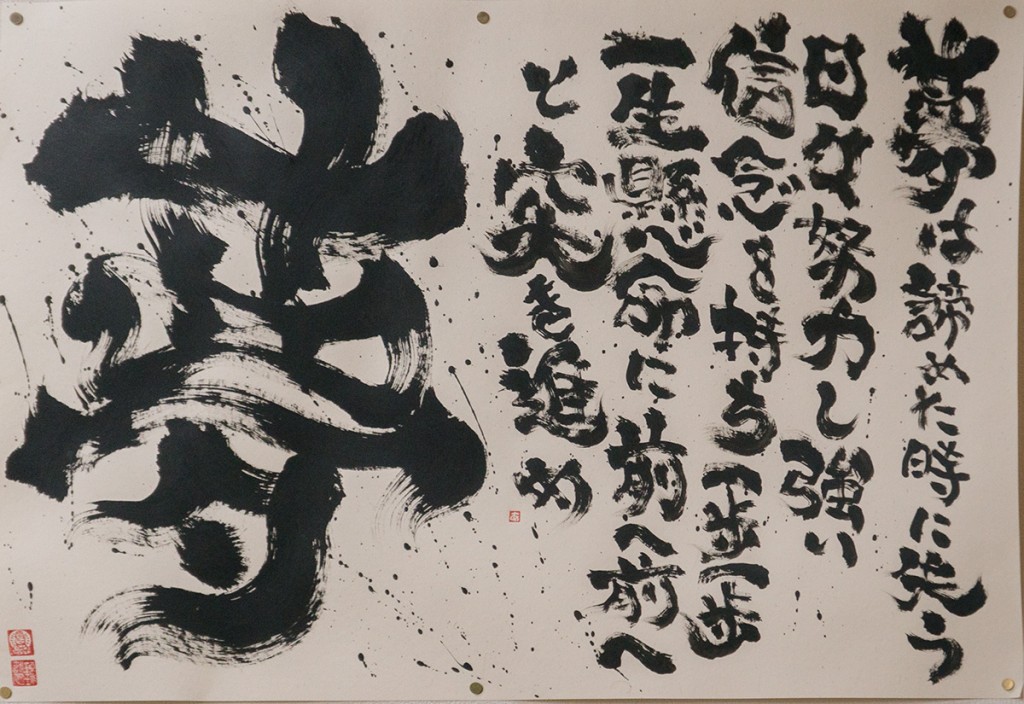 夢は諦めた時に失う
日々努力し強い
信念を持ち一歩一歩
一生懸命に前へ前へ
と突き進め
夢